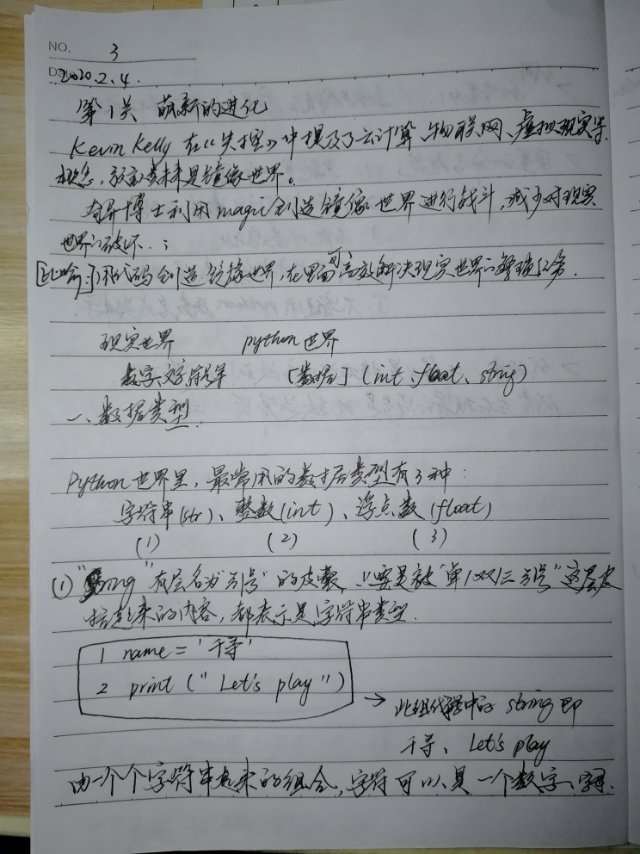 NO. 3
Date 2020.2.4.
第1关 萌新的进化
Kevin Kelly 在《失控》中提及了云计算、物联网、虚拟现实等
概念，预言未来是镜像世界。
奇异博士利用magic创造镜像世界进行战斗，减少对现实
世界的破坏..；
[比喻:]用代码创造镜像世界，在里面可高效解决现实世界的繁琐任务.
现实世界 python 世界
数字、文字、符号等 [数据] (int、float、string)
一、数据类型.
Python 世界里，最常用的数据类型有3种:
字符串(str)、整数(int)、浮点数(float)
(1) (2) (3)
(1) "String"有层名为'引号'的皮囊，只要是被"单/双/三引号"这层皮
括起来的内容，都表示是字符串类型.
1 name = '千寻'
2 print (" Let's play ")
→ 此组代码中的 string 即
千寻、Let's play
由一个个字符串起来的组合，字符可以是一个数字、字母.